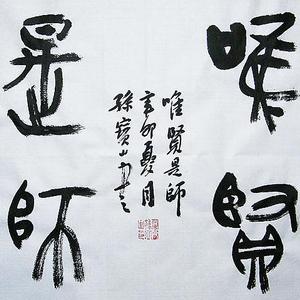 唯賢
唯賢是師
辛卯夏月
孫寶山
是師